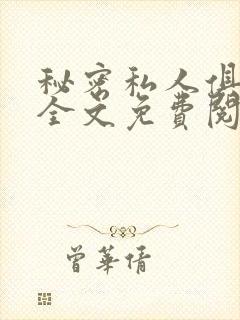 秘密私人俱
全文免費閱
曾華倩